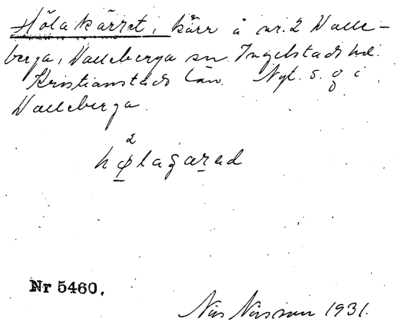 Hölakärret, kärr å nr. 2 Valle-
berga, Valleberga sn. Ingelstads hd.
Kristianstads län. Ngl. s. 9 i
Valleberga.
2
hølagarad
Nr 5460.
Nils Nilsson 1931.